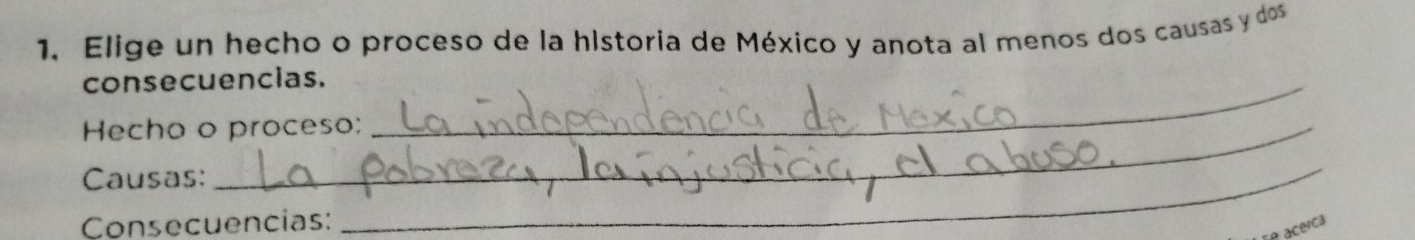 1. Elige un hecho o proceso de la historia de México y anota al menos dos causas y dos
consecuencias.
Hecho o proceso: La independencia de Mexico
Causas: La pobreza, la injusticia, el abuso.
Consecuencias:
se acerca